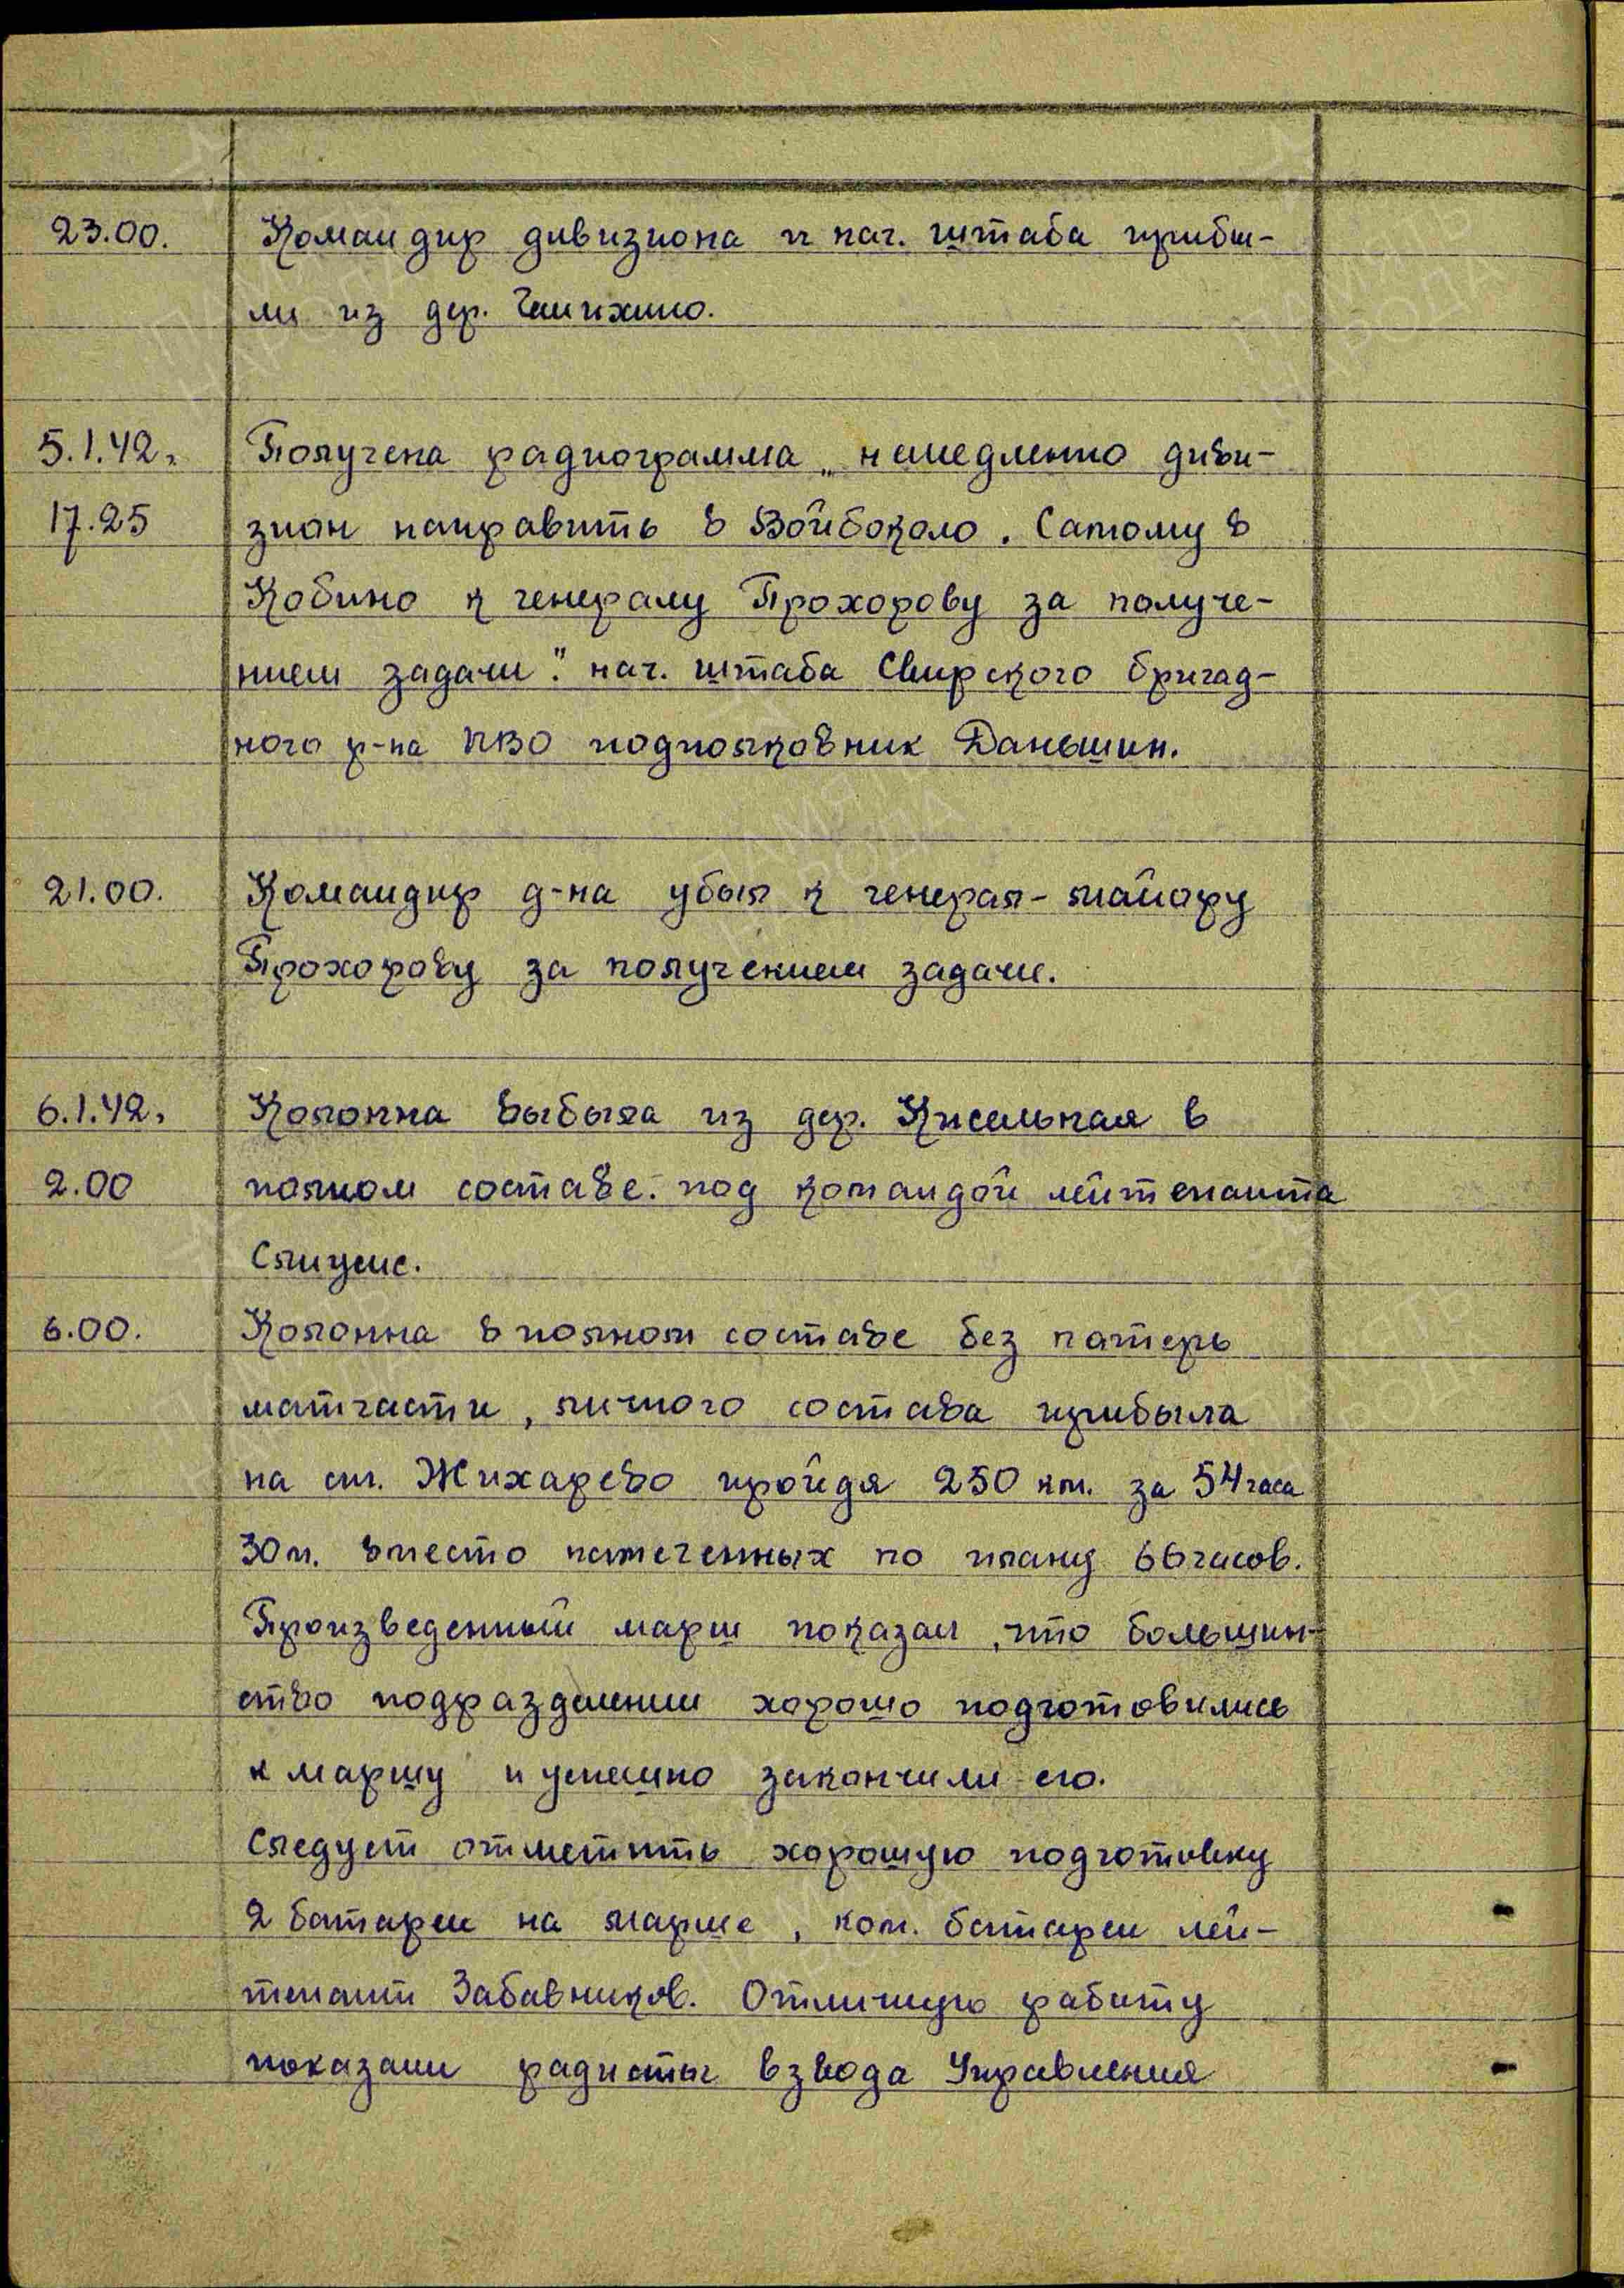 23.00. Командир дивизиона и нач. штаба прибы-
ли из дер.
5.1.42. Получена радиограмма „немедленно диви-
17.25 зион направить в Войбокало. Самому в
Кобино к генералу Прохорову за получе-
нием задачи". нач. штаба Свирского бригад-
ного р-на ПВО подполковник Даньшин.
21.00. Командир д-на убыл к генерал-майору
Прохорову за получением задачи.
6.1.42. Колонна выбыла из дер. Кисельная в
2.00 полном составе. под командой лейтенанта
6.00. Колонна в полном составе без потерь
матчасти, личного состава прибыла
на ст. Жихарево пройдя 250 км. за 54 часа
30 м. вместо намеченных по плану 66 часов.
Произведенный марш показал, что большин-
ство подразделении хорошо подготовились
к маршу и успешно закончили его.
Следует отметить хорошую подготовку
2 батареи на марше, ком. батареи лей-
тенант Забавников. Отличную работу
показали радисты взвода Управления
ПАМЯТЬ
НАРОДА